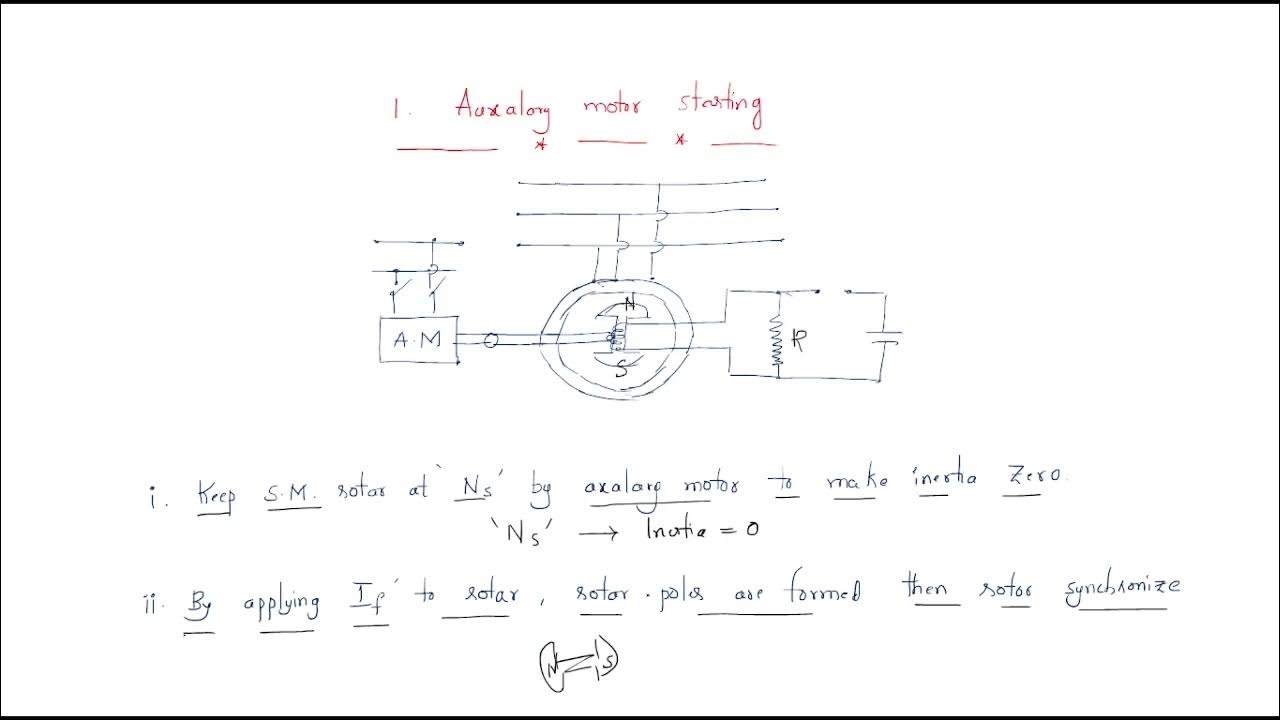 1. Auxalary motor starting
N
A.M
R
S
i. Keep S.M. rotar at 'Ns' by axalary motor to make inertia zero.
'Ns' → Inertia = 0
ii. By applying If' to rotar, rotar poles are formed then rotor synchronize
N S